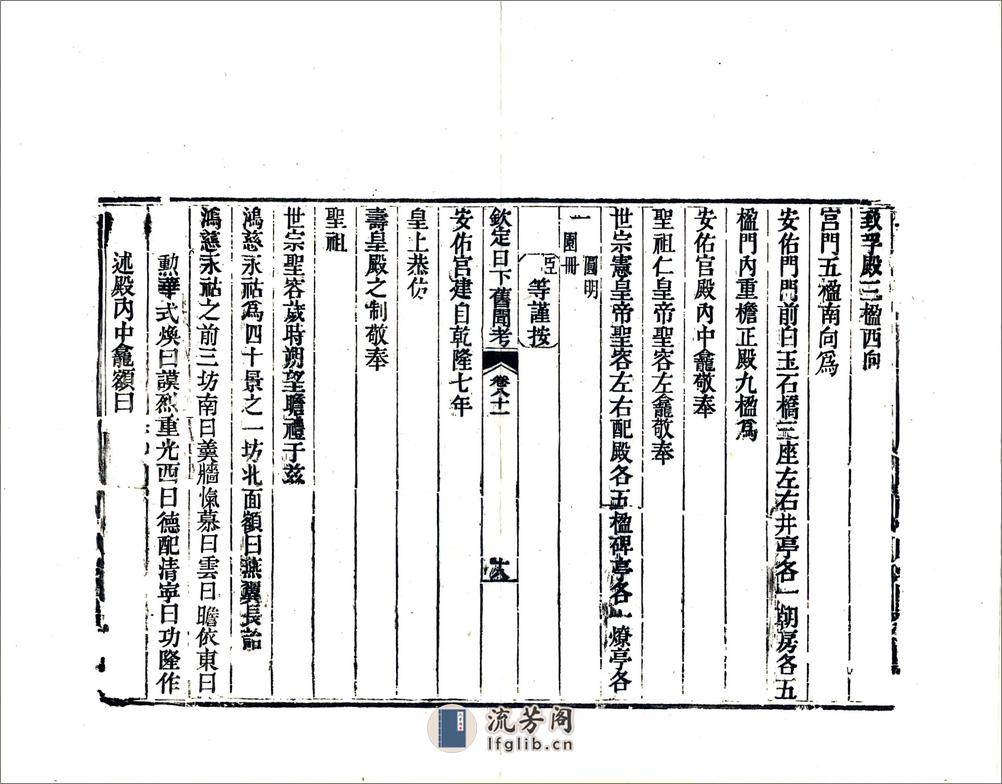 致孚殿三楹西向
宮門五楹南向爲
安佑門門前白玉石橋三座左右井亭各一朝房各五
楹門內重檐正殿九楹爲
安佑宮殿內中龕敬奉
聖祖仁皇帝聖容左龕敬奉
世宗憲皇帝聖容左右配殿各五楹碑亭各一燎亭各
一圓明園冊
臣等謹按
欽定日下舊聞考 卷八十一 十八
安佑宮建自乾隆七年
皇上恭仿
壽皇殿之制敬奉
聖祖
世宗聖容歲時朔望瞻禮于玆
鴻慈永祜爲四十景之一坊北面額曰燕翼長詒
鴻慈永祜之前三坊南曰羹牆愾慕曰雲日瞻依東曰
勳華式煥曰謨烈重光西曰德配清寧曰功隆作
述殿內中龕額曰
流芳阁
lfglib.cn